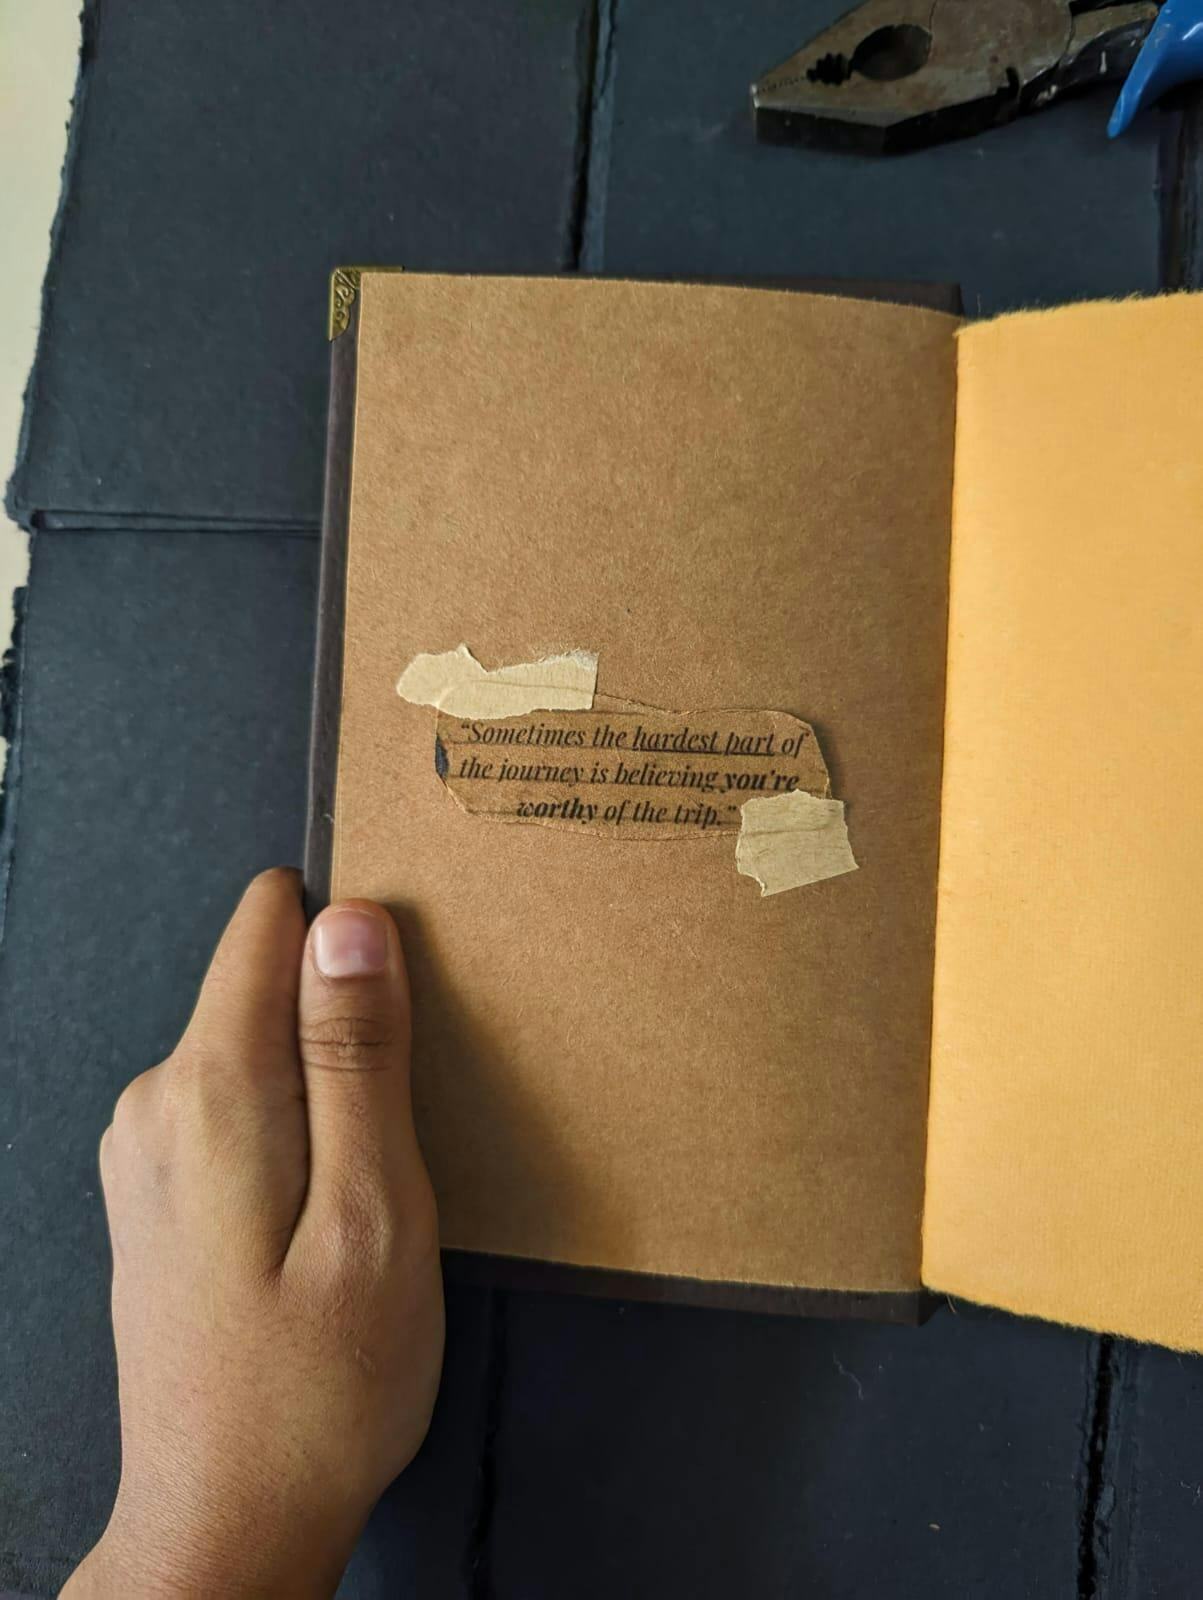 “Sometimes the hardest part of
the journey is believing you're
worthy of the trip.”